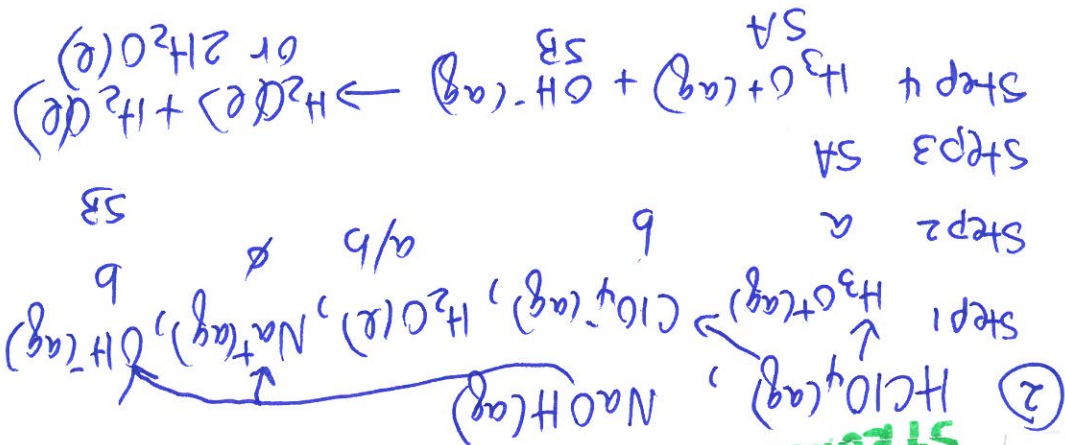 ② HClO₄(aq), NaOH(aq)
Step 1 H₃O⁺(aq), ClO₄⁻(aq), H₂O(l), Na⁺(aq), OH⁻(aq)
Step 2 a b a/b ∅ b
Step 3 SA SB
Step 4 H₃O⁺(aq) + OH⁻(aq) → H₂O(l) + H₂O(l)
SA SB or 2H₂O(l)